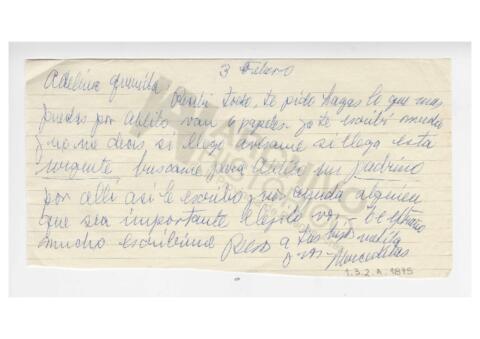 3 Febrero
Adelina querida Recibí todo, te pido hagas lo que mas
puedas por Ablito van 6 papeles. ya te escribí mucho
y no me decis si llego avisame si llega esta
urgente buscame para Ablito un padrino
por alli asi le escribo y nos ayuda alguien
que sea importante elegilo vos - te extraño
mucho escribime Besos a tus hijos
y vos - Merceditas
1.3.2.A.1895